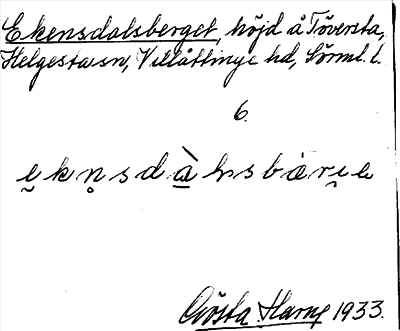 Ekensdalsberget, höjd å Töversta,
Helgesta sn, Villåttinge hd, Sörml. l.
6.
Gösta Harne 1933.